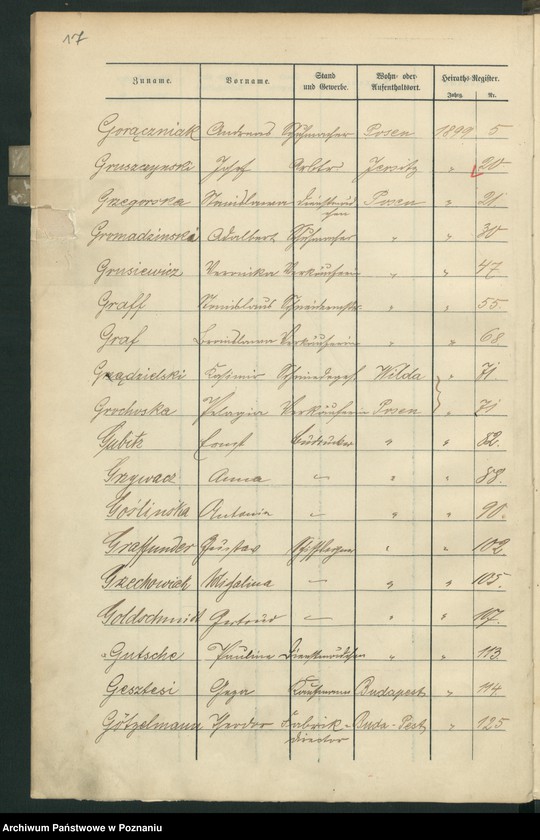 17
Zuname. Vorname. Stand und Gewerbe. Wohn- oder Aufenthaltsort. Heiraths-Register.
Jahrg. Nr.
Gorączniak Andreas Schuhmacher Posen 1899 5
Gruszczynski Josef Arbtr. Jersitz " 20
Grzegorska Stanislawa Dienstmädchen Posen " 21
Gromadzinski Adalbert Schuhmacher " " 30
Grusiewicz Veronika Verkäuferin " " 47
Graff Stanislaus Schneidermstr. " " 55
Graf Bronislawa Verkäuferin " " 68
Grządzielski Kasimir Schmiedeges. Wilda " 71
Grochoska Pelagia Verkäuferin Posen " 71
Gubitz Ernst " " 82.
Grzywacz Anna — " " 88.
Goślinska Antonie — " " 90.
Graffunder Gustav " " 102
Grzechowiak Michalina — " " 105.
Goldschmidt Gertrud — " " 107.
Gutsche Pauline Dienstmädchen " " 113
Gesztesi Geza Kaufmann Budapest " 114
Götzelmann Theodor Fabrik-director Buda-Pest " 125
Archiwum Państwowe w Poznaniu